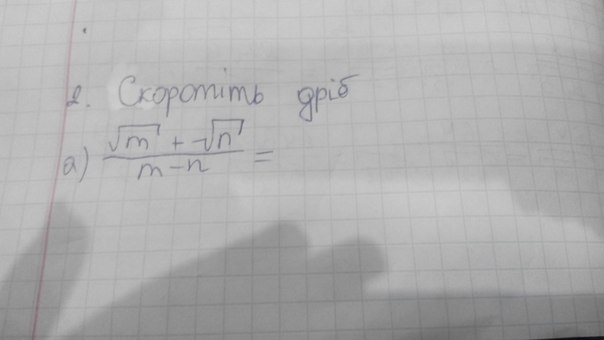 2. Скоротіть дріб
а) (√m + √n)/(m - n) =